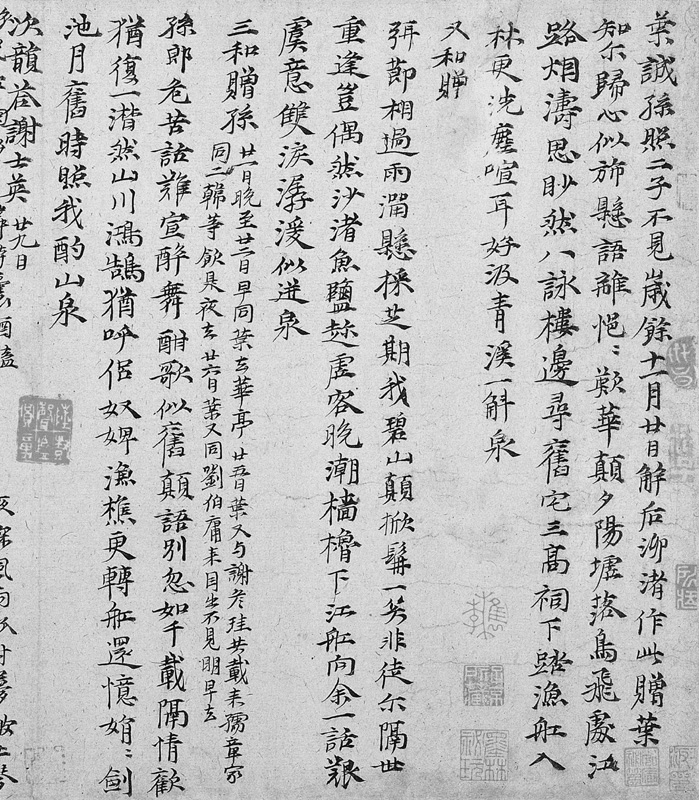 葉誠孫照二子不見歲餘十一月廿日解后泖渚作此贈葉
知尔歸心似旆懸語離悒〻歎華顛夕陽墟落烏飛處江
路烟濤思眇然八詠樓邊尋舊宅三高祠下踏漁舡入
林更洗塵喧耳好汲青溪一斛泉
又和贈
弭節棡過雨潤懸採芝期我碧山顛掀髯一笑非徒尔隔世
重逢豈偶然沙渚魚鹽趂虛客晚潮檣櫓下江舡向余一話艱
虞意雙淚潺湲似迸泉
三和贈孫
廿一日晚至廿三日早同葉去華亭廿五日葉又与謝彥珪共載来孺章家
同二韓等飲是夜去廿六日葉又同劉伯庸来目坐不見明早去
孫郎危苦語難宣醉舞酣歌似舊顛語別忽如千載隔情歡
猶復一潸然山川鴻鵠猶呼侶奴婢漁樵更轉舡還憶娟〻劍
池月舊時照我酌山泉
次韻荅謝士英 廿九日